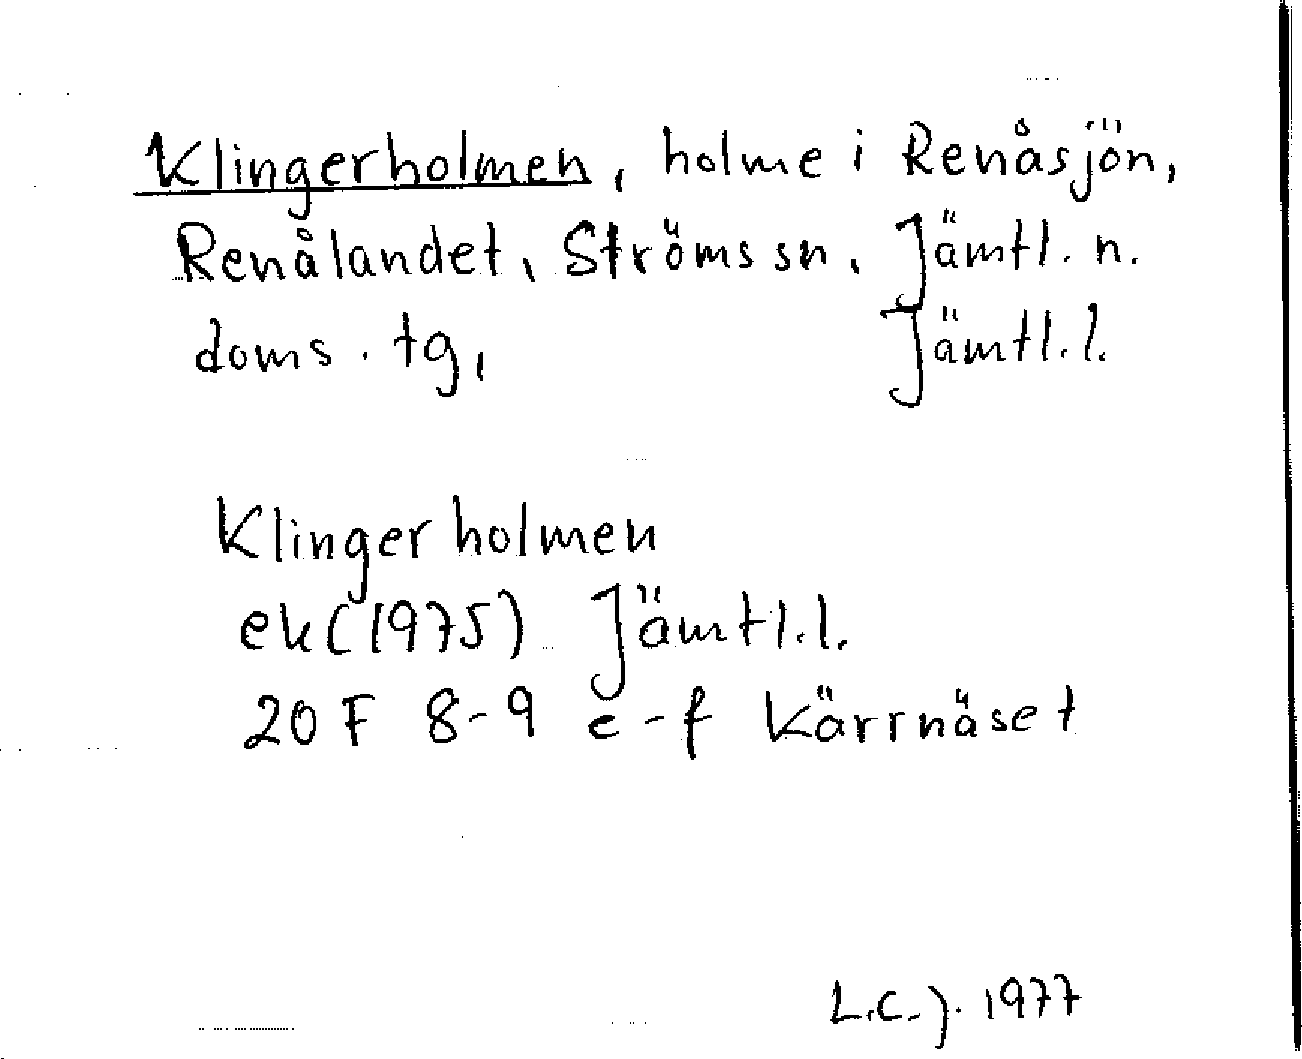 Klingerholmen, holme i Renåsjön,
Renålandet, Ströms sn, Jämtl. n.
doms. tg, Jämtl. l.
Klingerholmen
ek (1975) Jämtl. l.
20 F 8-9 e-f Kärrnäset
L.C.J. 1977